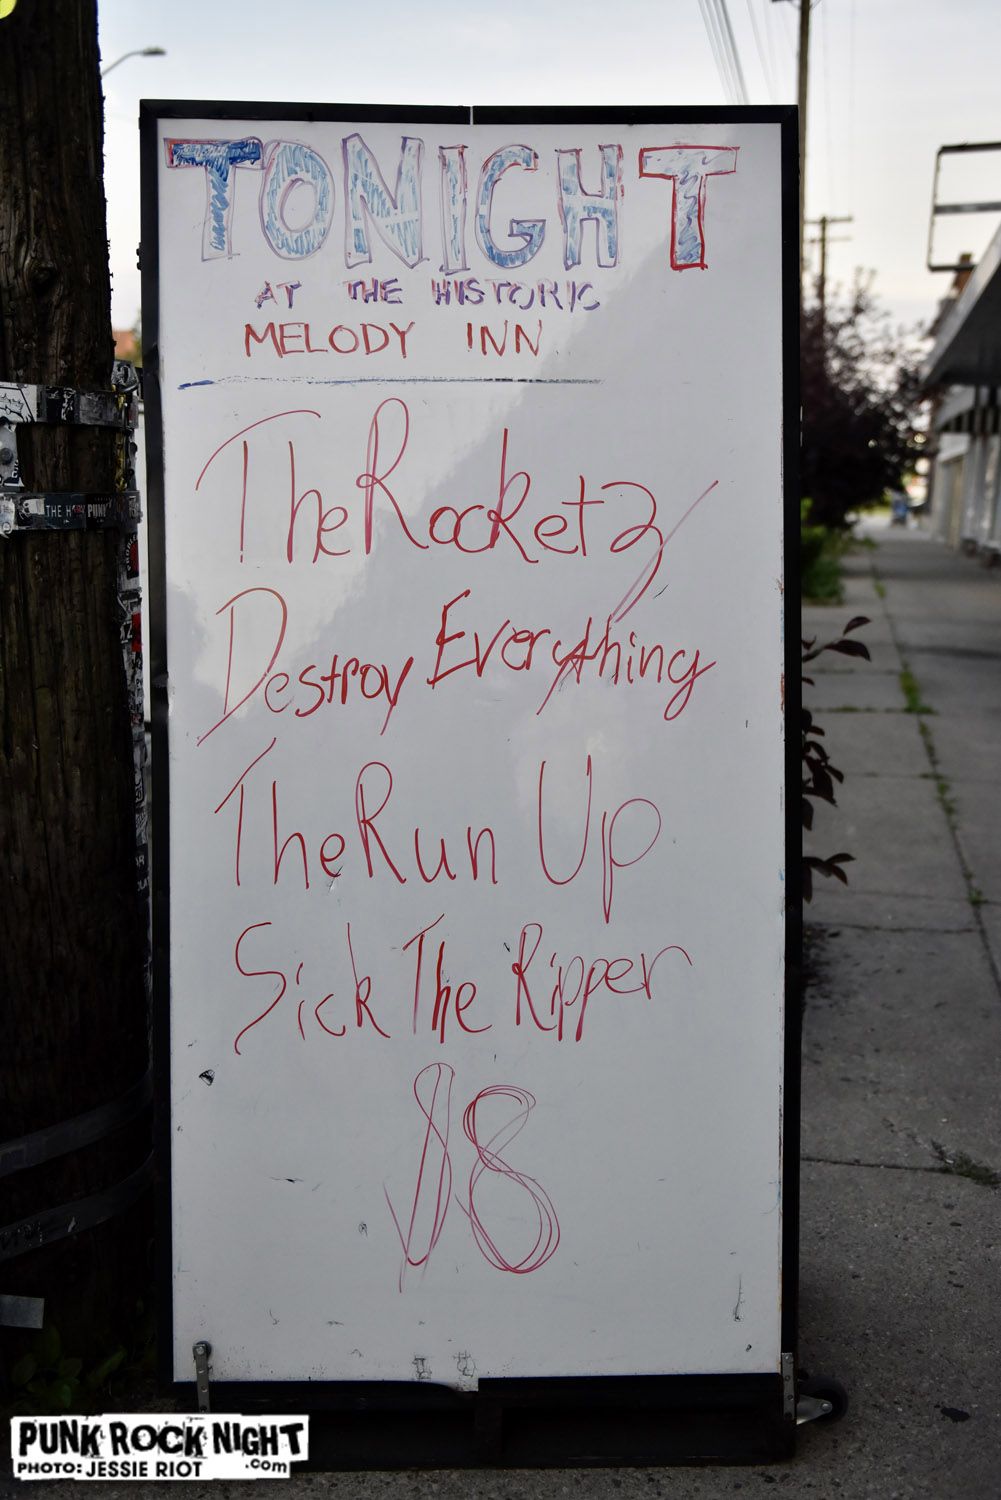 TONIGHT
AT THE HISTORIC
MELODY INN
The Rocketz
Destroy Everything
The Run Up
Sick The Ripper
$8
PUNK ROCK NIGHT
.com
PHOTO: JESSIE RIOT